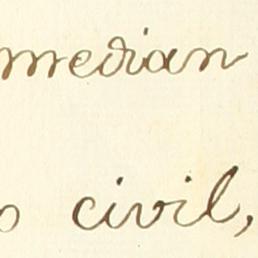 median
o civil,